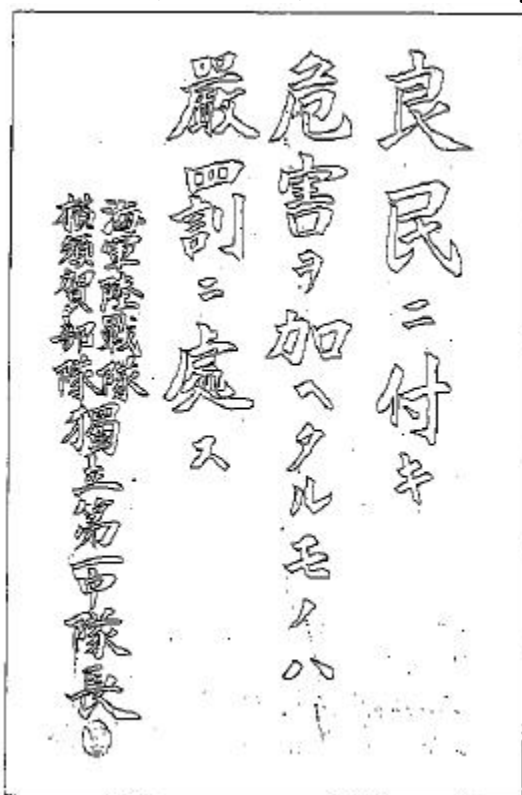 良民ニ付キ
危害ヲ加ヘタルモノハ
嚴罰ニ處ス
海軍陸戰隊
横須賀部隊
獨立第一中隊長